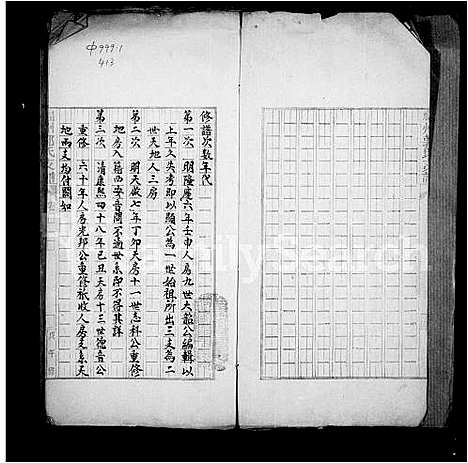 φ999.1
413
修譜次數年代
第一次 明隆慶六年壬申人房九世大韶公編輯以
上年久失考即以顯公為一世始祖所出三支為二
世天地人三房
第二次 明天啟七年丁卯天房十一世志科公重修
地房入籍西安音問不通世系即不得其詳
第三次 清康熙四十八年己丑天房十三世德音公
重修 六十年人房光邦公重修祇收人房支系天
地兩支均付闕如
FamilySearch